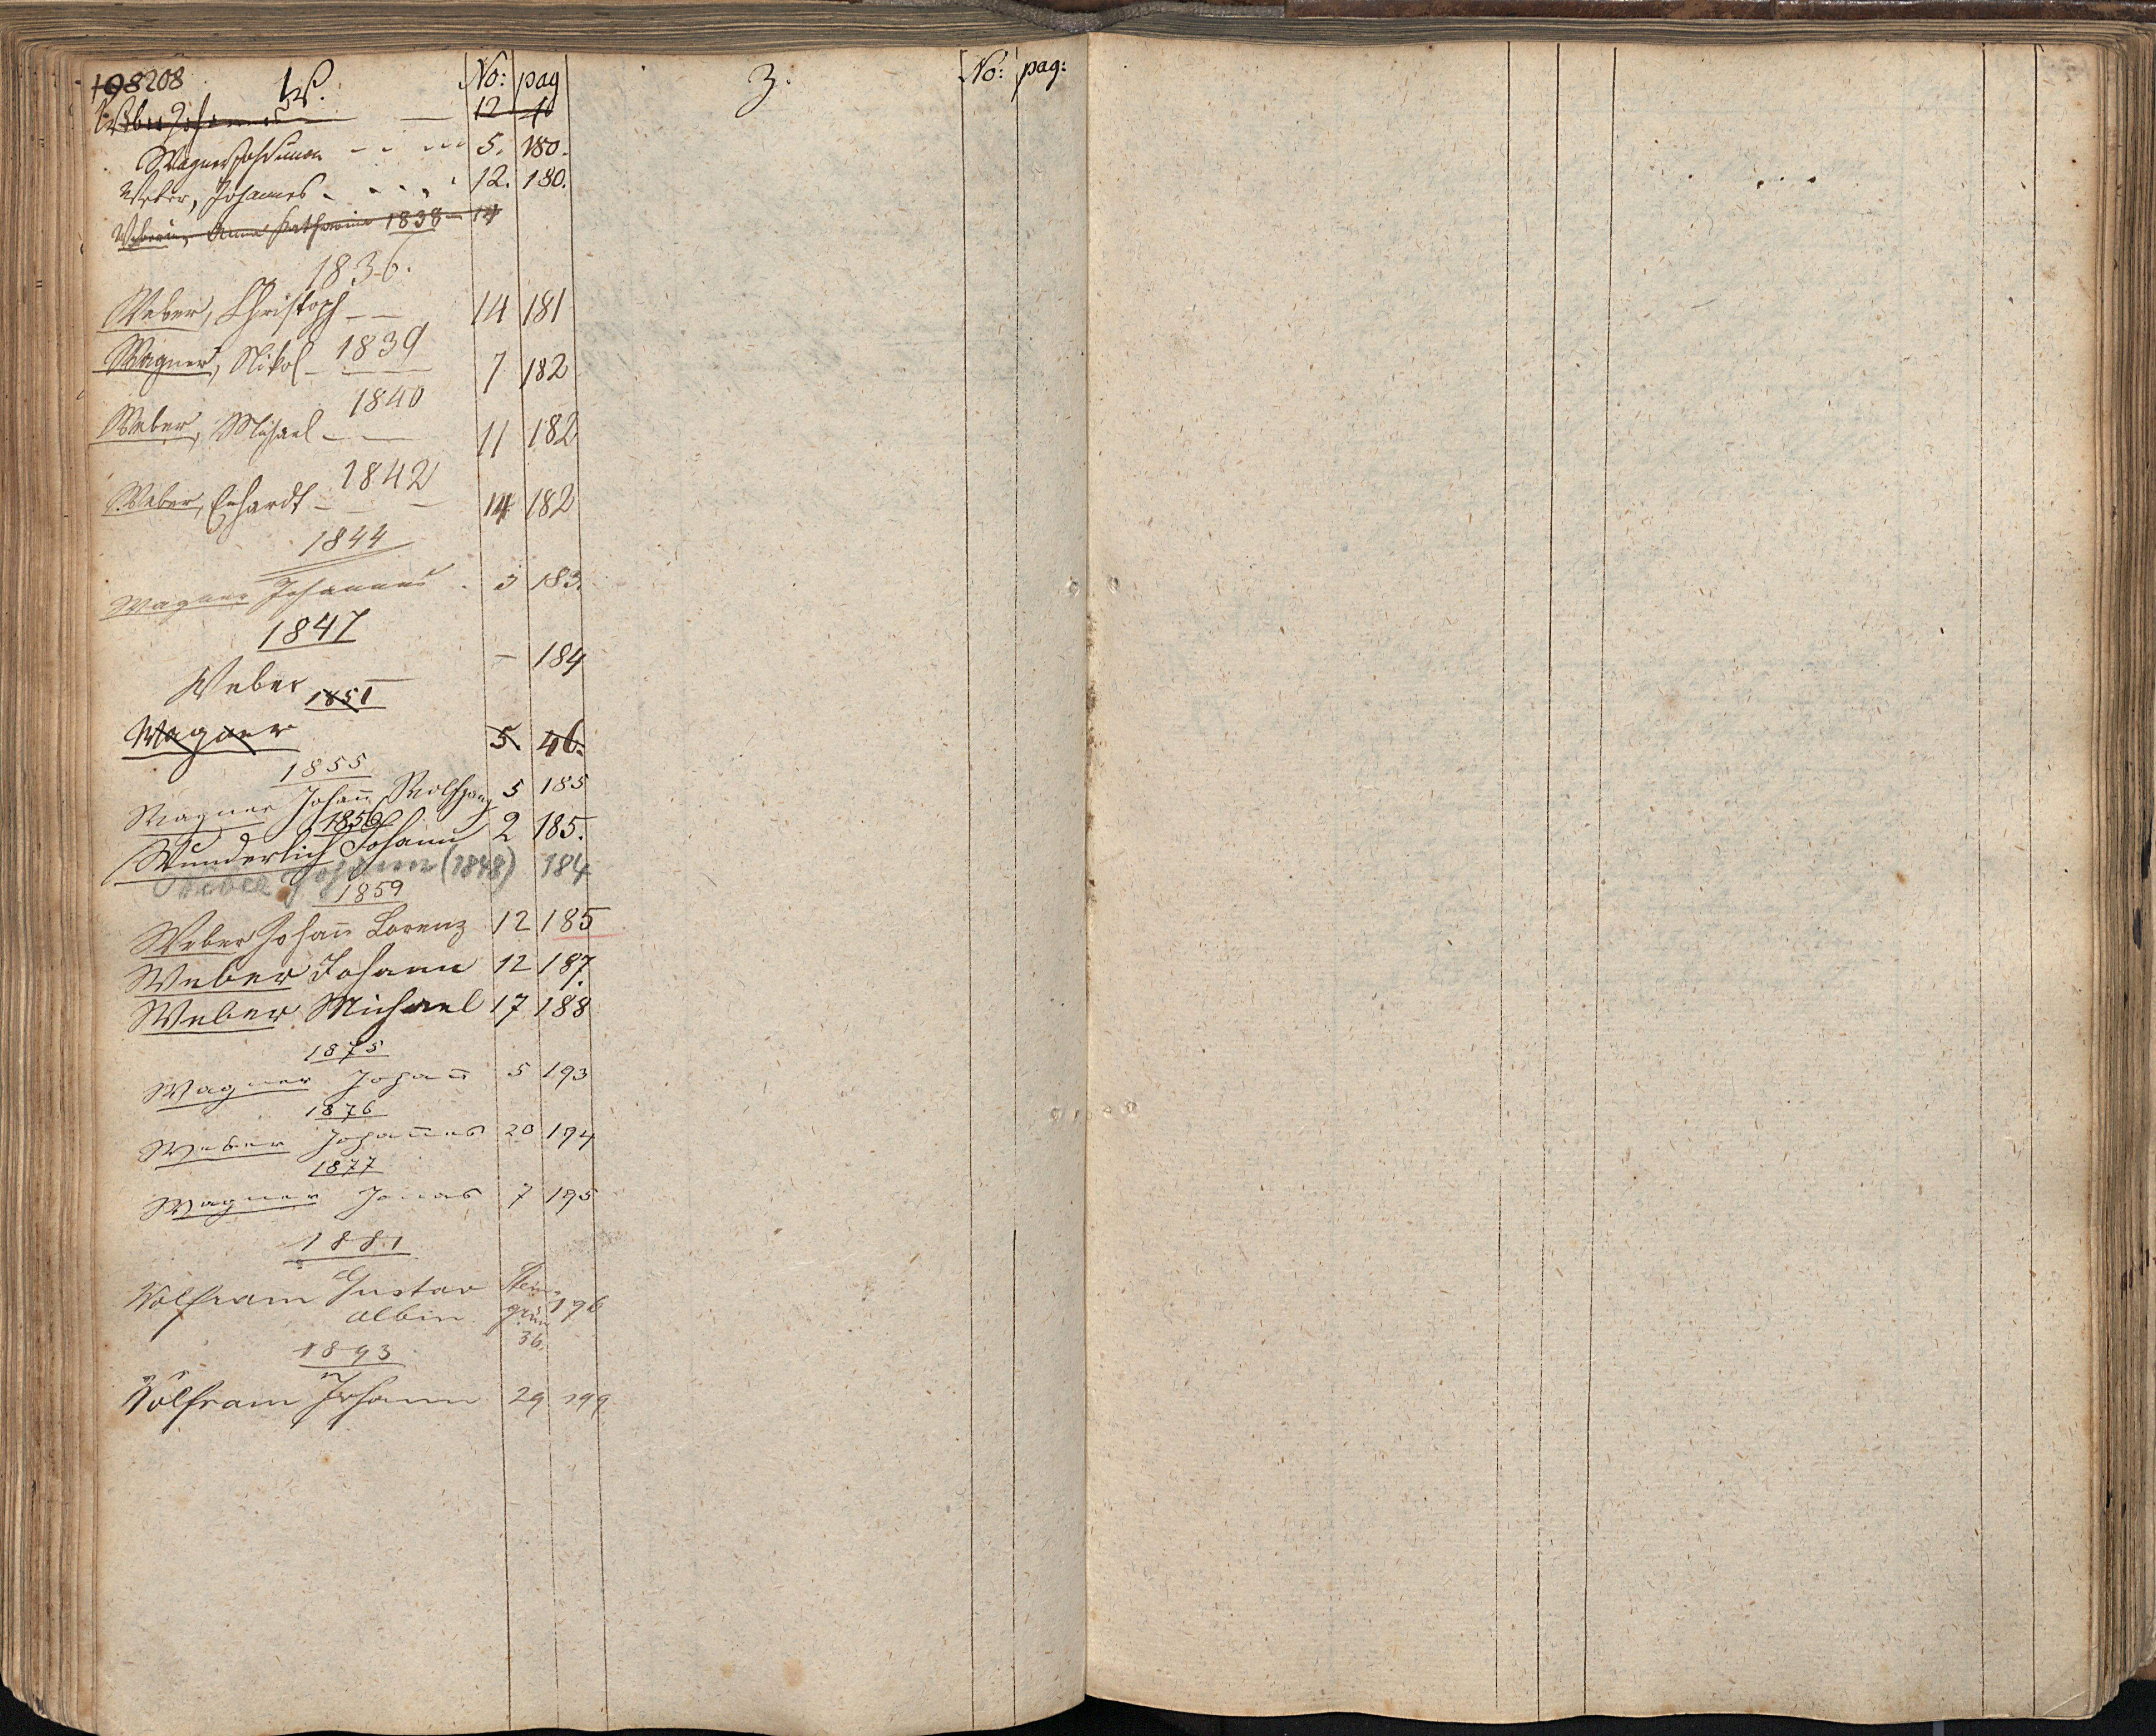 198 208 W. No: pag
Weber Johannes — 12 40
Wagner Johann 5. 180.
Weber, Johannes 12. 180.
Weberin, Anna Katharina 1838 — 14
1836.
Weber, Christoph — 14 181
1839
Wagner, Nikol — 7 182
1840
Weber, Michael — 11 182
1842
Weber, Erhardt — 14 182
1844
Wagner Johannes 3 183.
1847
Weber — 184
1851
Wagner 5. 46.
1855
Wagner Johann̄ Wolfgang 5 185
1856
Wunderlich Johann 2 185.
Weber Johann (1848) 184
1859
Weber Johan̄ Lorenz 12 185
Weber Johann 12 187.
Weber Michael 17 188
1875
Wagner Johan̄ 5 193
1876
Weber Johan̄es 20 194
1877
Wagner Jonas 7 195
1881
Wolfram Gustav Stein-
albin grün 196
36.
1893
Wolfram Johann 29 199
Z. No: pag: